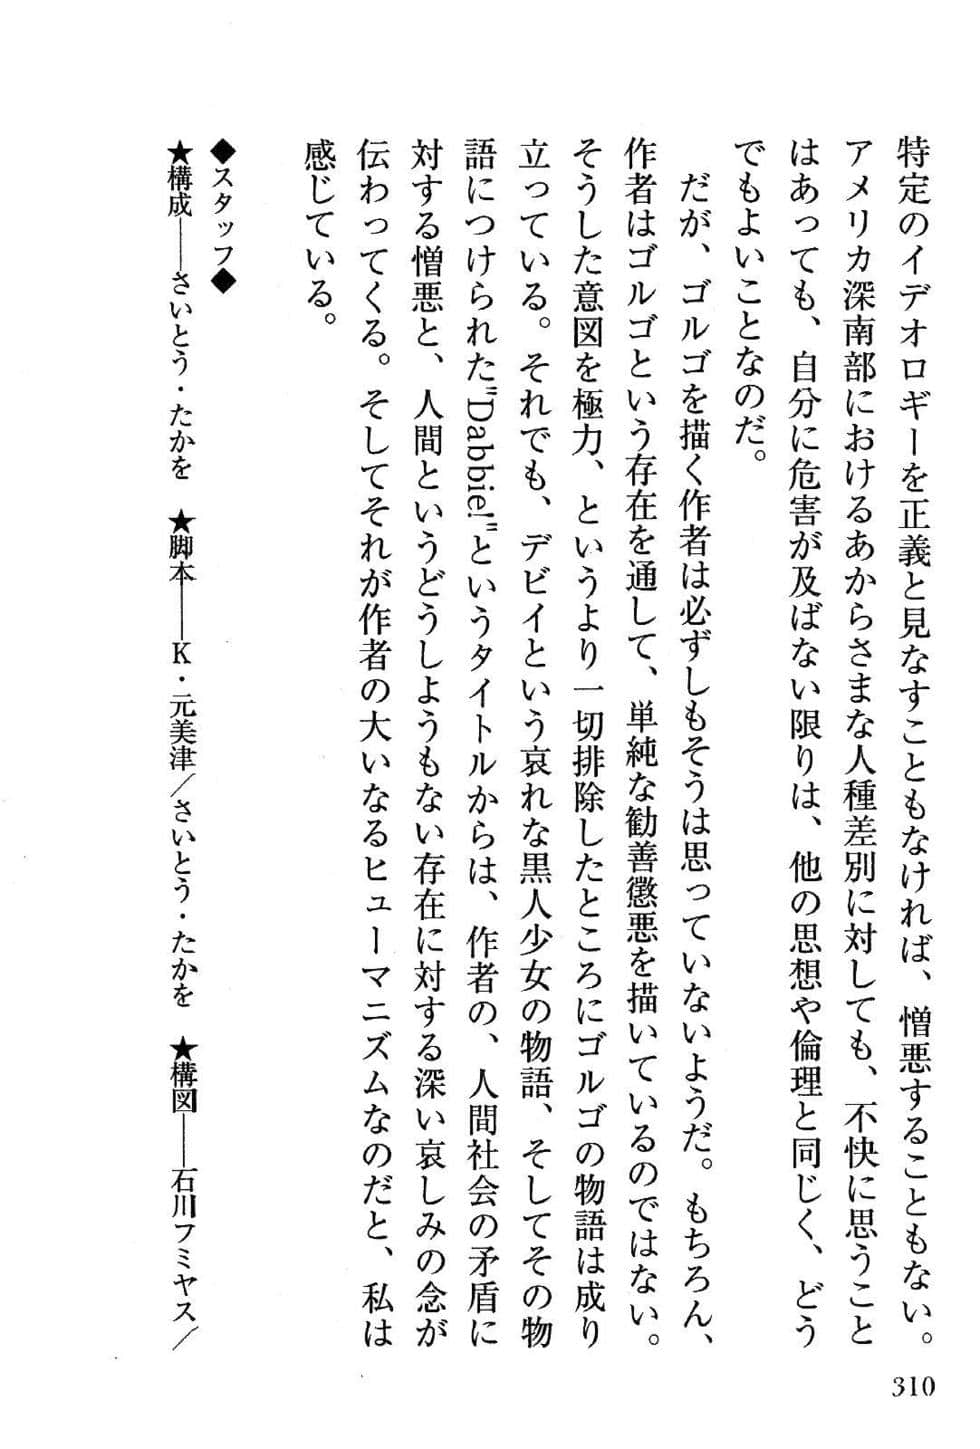 特定のイデオロギーを正義と見なすこともなければ、憎悪することもない。
アメリカ深南部におけるあからさまな人種差別に対しても、不快に思うこと
はあっても、自分に危害が及ばない限りは、他の思想や倫理と同じく、どう
でもよいことなのだ。
だが、ゴルゴを描く作者は必ずしもそうは思っていないようだ。もちろん、
作者はゴルゴという存在を通して、単純な勧善懲悪を描いているのではない。
そうした意図を極力、というより一切排除したところにゴルゴの物語は成り
立っている。それでも、デビイという哀れな黒人少女の物語、そしてその物
語につけられた"Dabbie!"というタイトルからは、作者の、人間社会の矛盾に
対する憎悪と、人間というどうしようもない存在に対する深い哀しみの念が
伝わってくる。そしてそれが作者の大いなるヒューマニズムなのだと、私は
感じている。
◆スタッフ◆
★構成——さいとう・たかを ★脚本——K・元美津／さいとう・たかを ★構図——石川フミヤス／
310